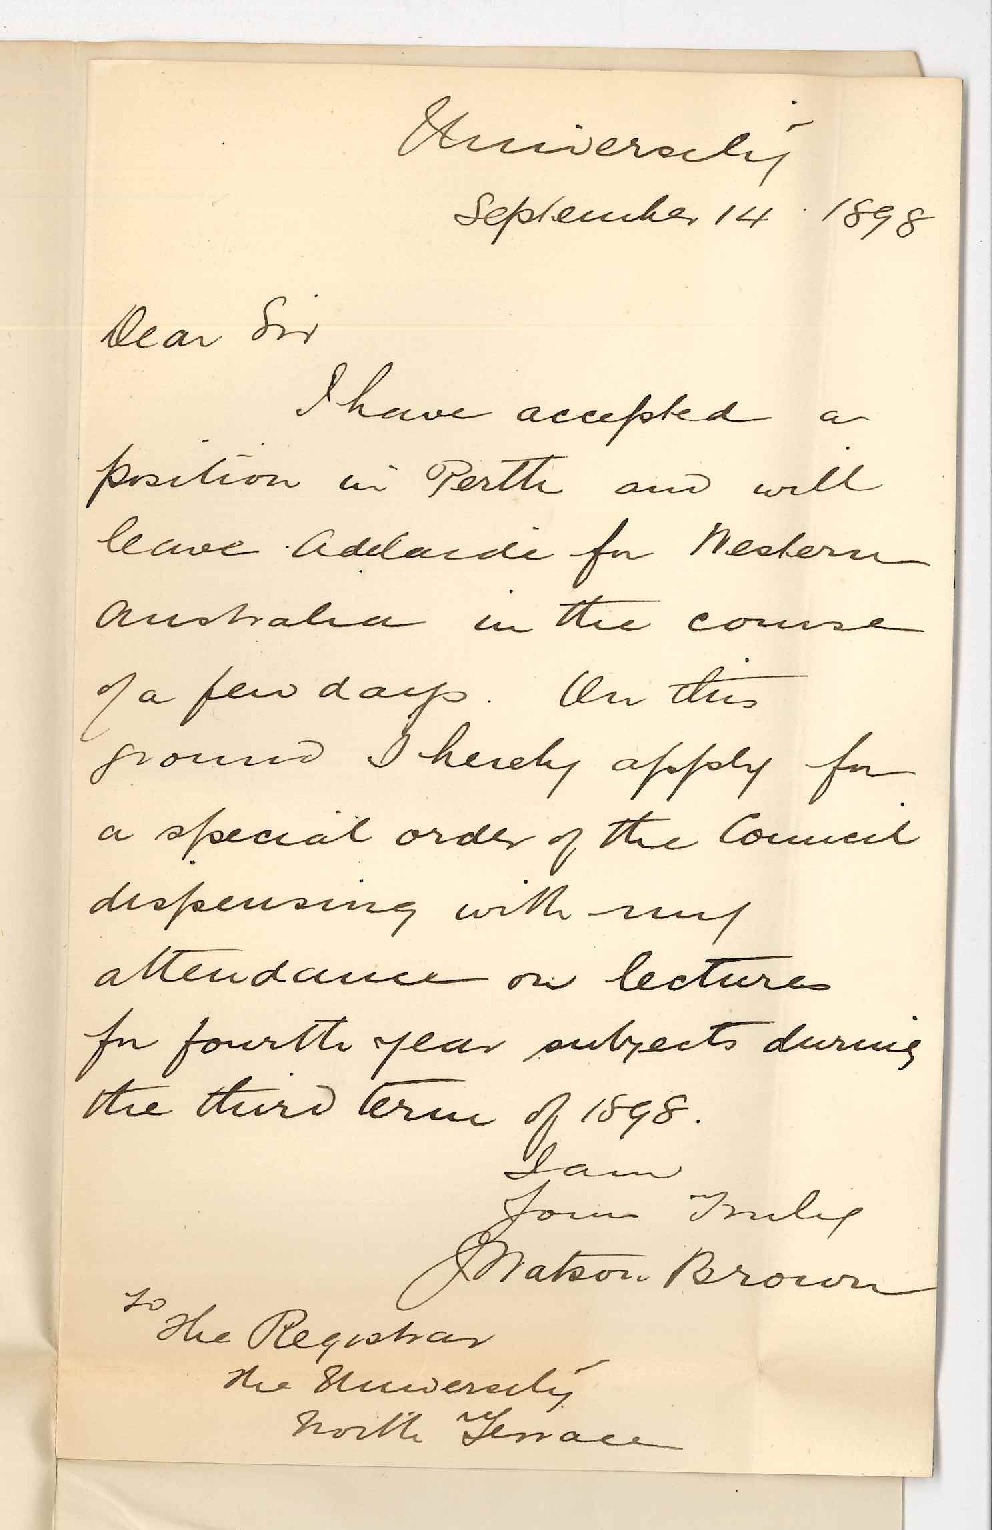 University
September 14 1898
Dear Sir
I have accepted a
position in Perth and will
leave Adelaide for Western
Australia in the course
of a few days. On this
ground I hereby apply for
a special order of the Council
dispensing with my
attendance on lectures
for fourth year subjects during
the third term of 1898.
I am
Yours Truly
J Watson Brown
To
The Registrar
The University
North Terrace